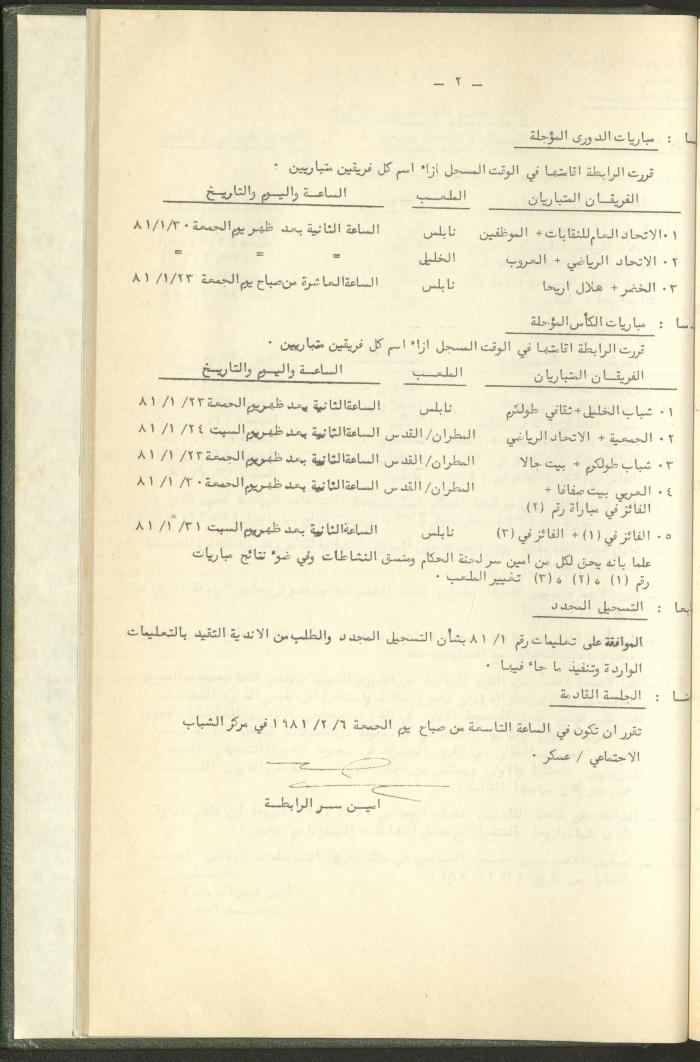 - ٢ -
سا : مباريات الدورى المؤجلة
قررت الرابطة اقامتها في الوقت المسجل ازاء اسم كل فريقين متباريين ٠
الفريقان المتباريان الملعب الساعة واليوم والتاريخ
٠١ الاتحاد العام للنقابات + الموظفين نابلس الساعة الثانية بعد ظهر يوم الجمعة ٨١/١/٣٠
٠٢ الاتحاد الرياضي + العروب الخليل = = =
٠٣ الخضر + هلال اريحا نابلس الساعة العاشرة من صباح يوم الجمعة ٨١/١/٢٣
دسا : مباريات الكأس المؤجلة
قررت الرابطة اقامتها في الوقت المسجل ازاء اسم كل فريقين متباريين ٠
الفريقان المتباريان الملعب الساعة واليوم والتاريخ
٠١ شباب الخليل + ثقافي طولكرم نابلس الساعة الثانية بعد ظهر يوم الجمعة ٢٣/ ١/ ٨١
٠٢ الجمعية + الاتحاد الرياضي المطران/ القدس الساعة الثانية بعد ظهر يوم السبت ٢٤/ ١/ ٨١
٠٣ شباب طولكرم + بيت جالا المطران/ القدس الساعة الثانية بعد ظهر يوم الجمعة ٢٣/ ١/ ٨١
٠٤ العربي بيت صفافا + المطران/ القدس الساعة الثانية بعد ظهر يوم الجمعة ٣٠/ ١/ ٨١
الفائز في مباراة رقم (٢)
٠٥ الفائز في (١) + الفائز في (٣) نابلس الساعة الثانية بعد ظهر يوم السبت ٣١/ ١/ ٨١
علما بانه يحق لكل من امين سر لجنة الحكام ومنسق النشاطات وفي ضوء نتائج مباريات
رقم (١) ، (٢) ، (٣) تغيير الملعب ٠
ابعا : التسجيل المجدد
الموافقة على تعليمات رقم ٨١/١ بشأن التسجيل المجدد والطلب من الاندية التقيد بالتعليمات
الواردة وتنفيذ ما جاء فيها ٠
نا : الجلسة القادمة
تقرر ان تكون في الساعة التاسعة من صباح يوم الجمعة ٦/ ٢/ ١٩٨١ في مركز الشباب
الاجتماعي / عسكر ٠
امين سر الرابطة